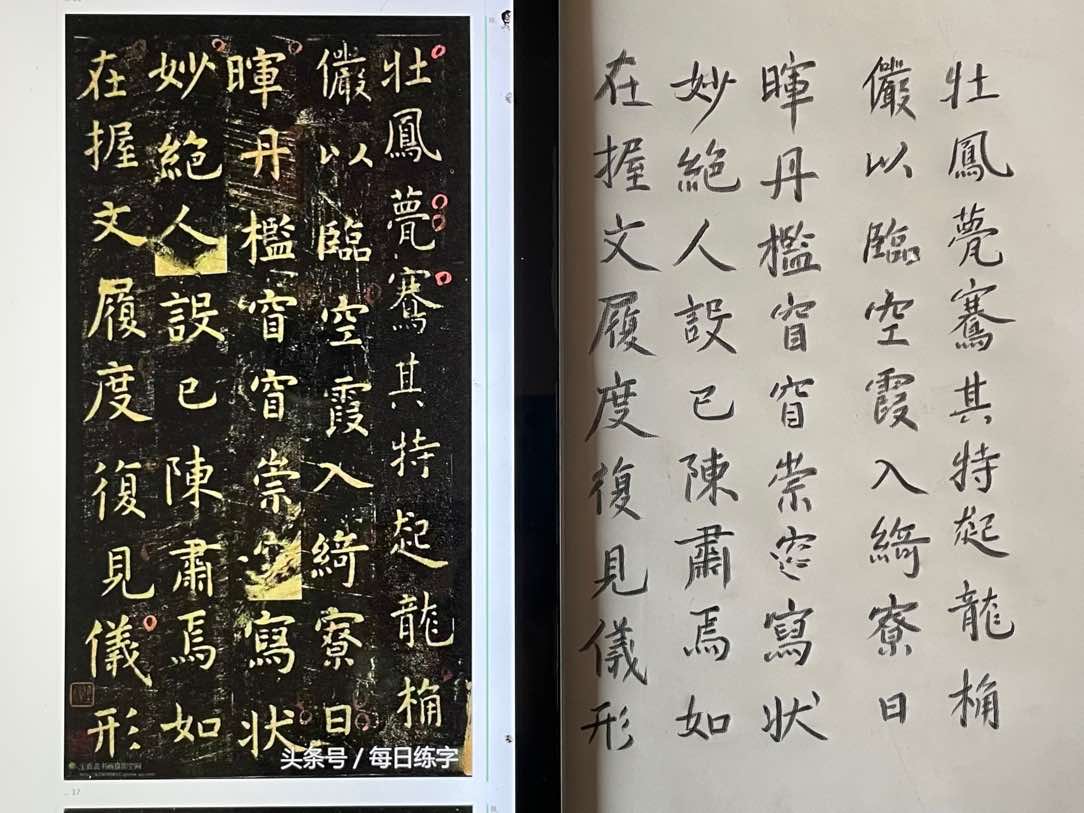 壯鳳甍騫其特起龍桷
儼以臨空霞入綺寮日
暉丹檻窅窅崇寫狀
妙絶人設已陳肅焉如
在握文履度復見儀形
头条号 / 每日练字
17
壯鳳甍騫其特起龍桷
儼以臨空霞入綺寮日
暉丹檻窅窅崇寫狀
妙絶人設已陳肅焉如
在握文履度復見儀形